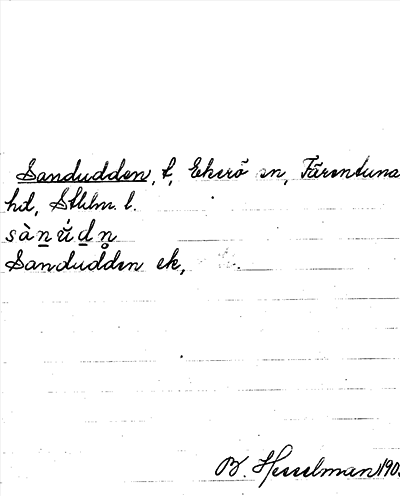 Sandudden, t, Ekerö sn, Färentuna
hd, Sthlm. l.
sàn̲ǘd̲n̥
Sandudden ek,
B. Hesselman 190